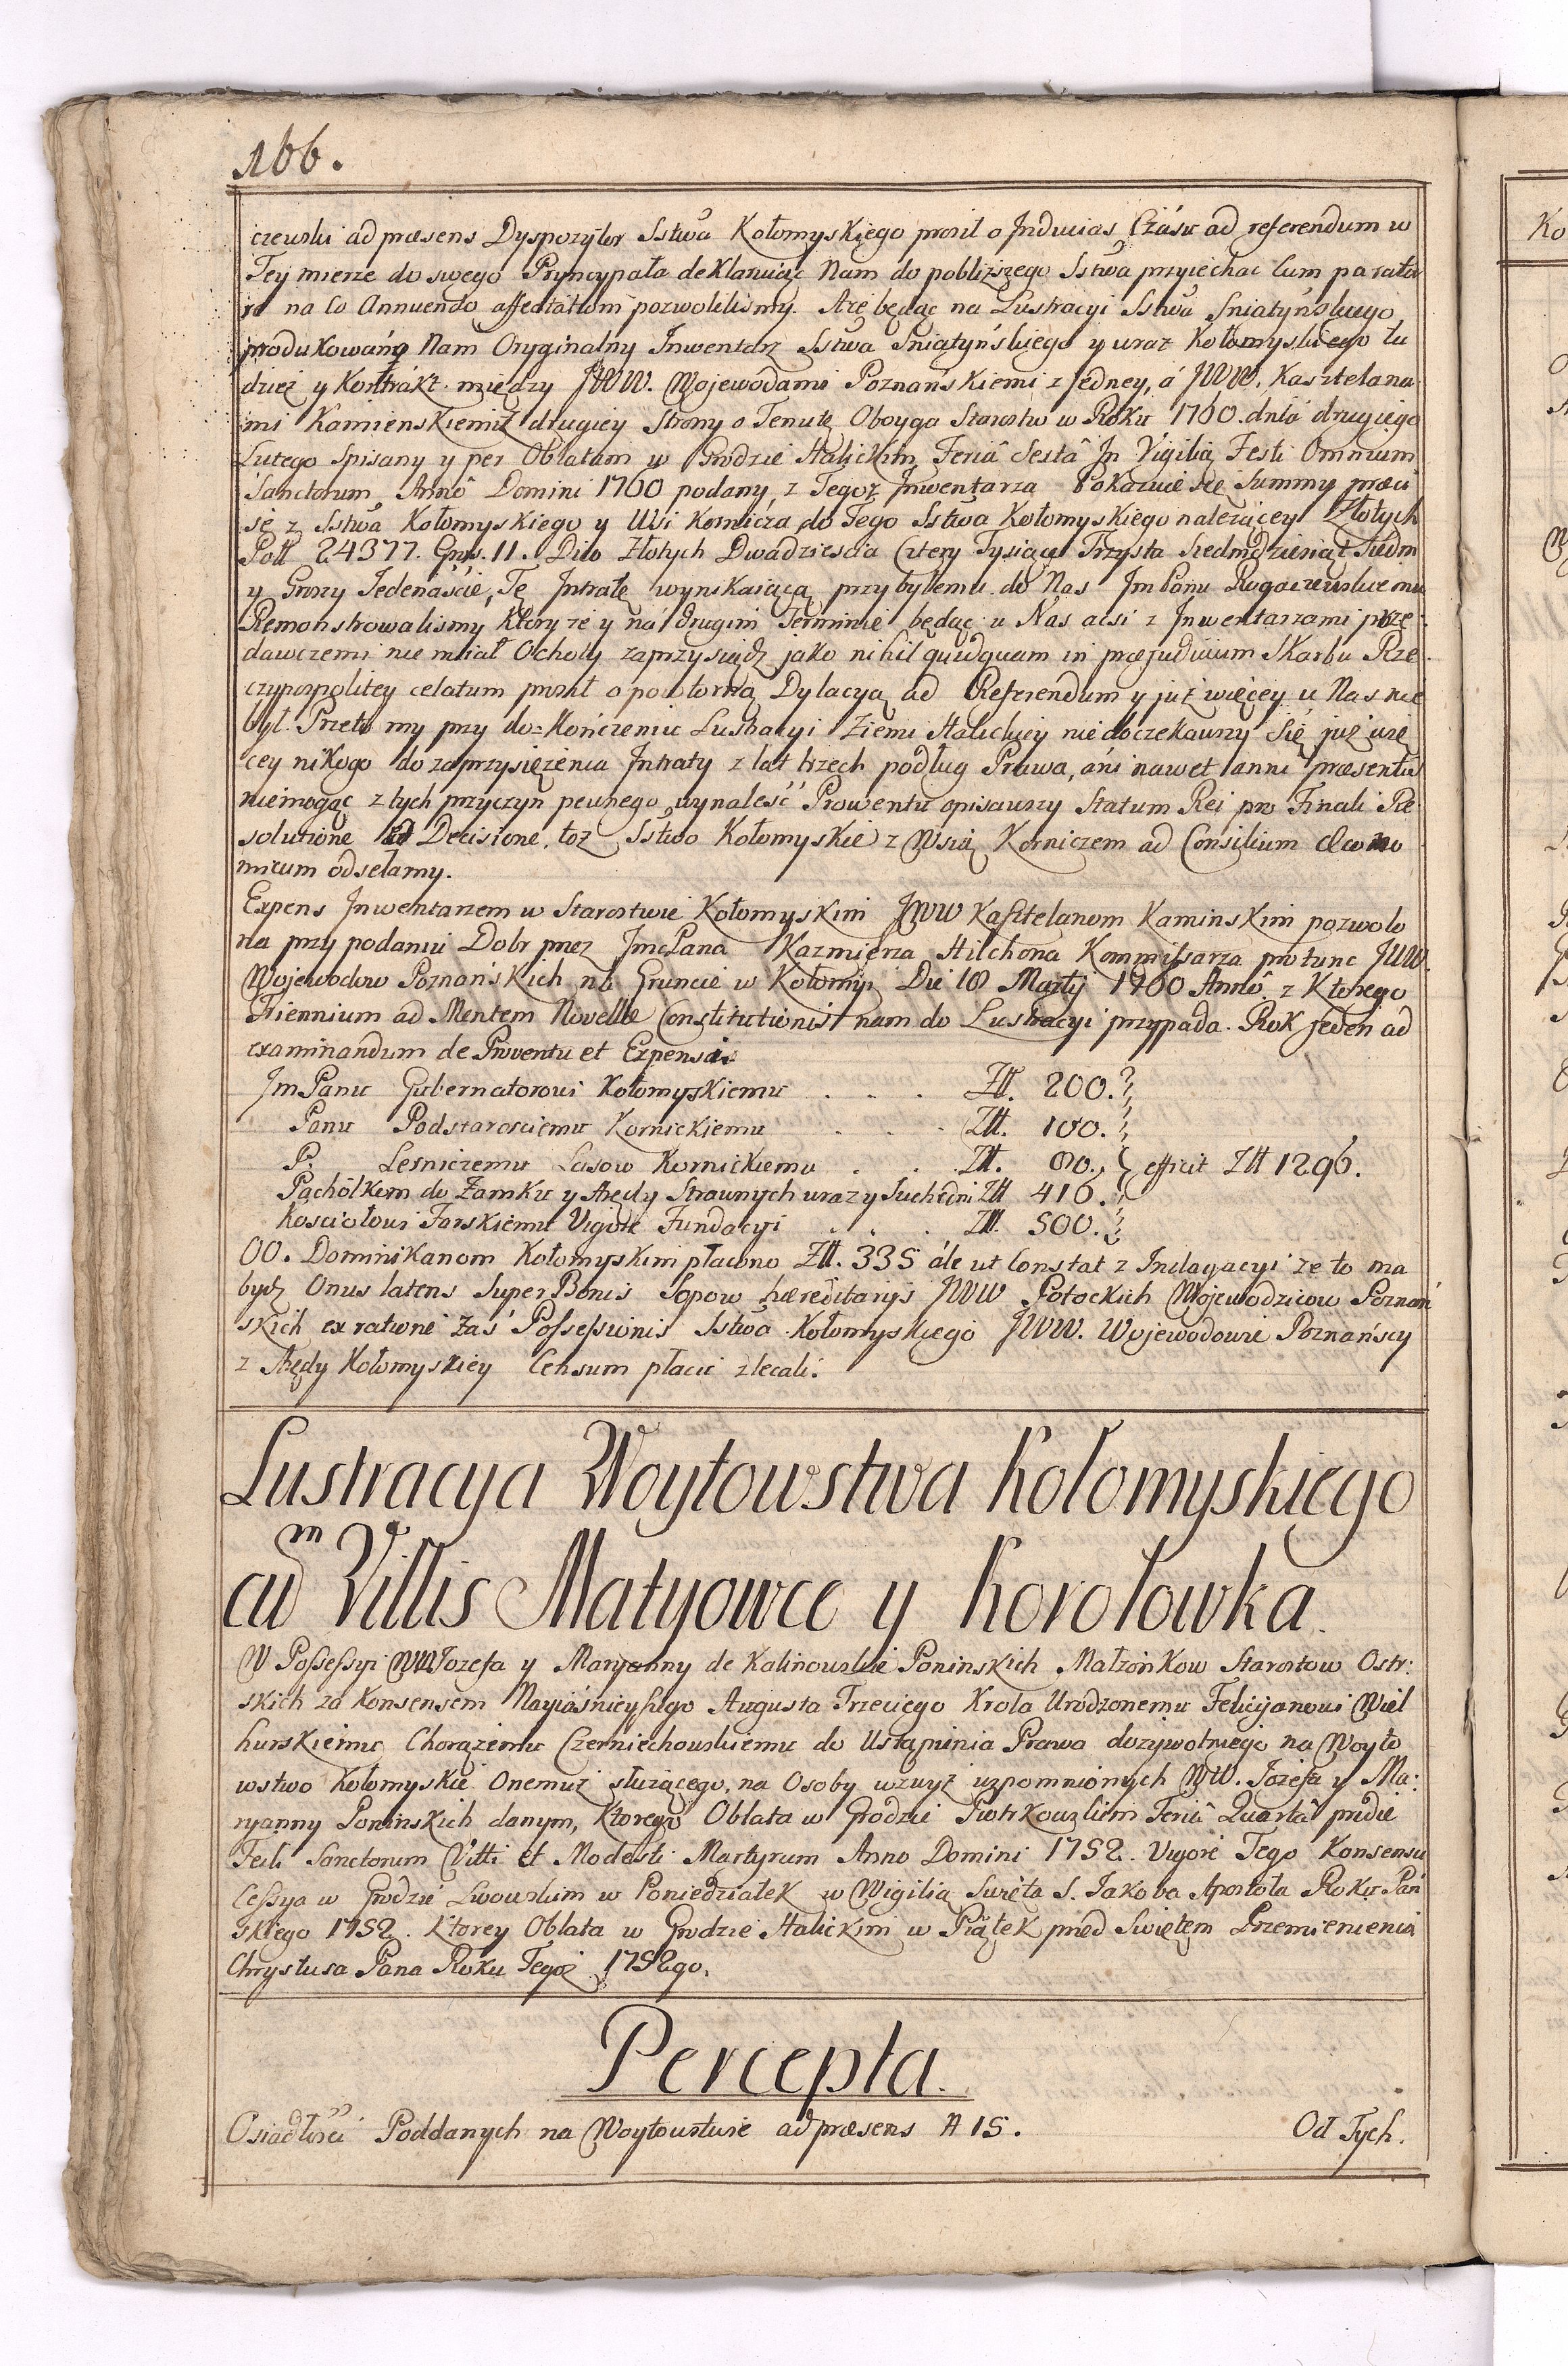 166.
czewski ad præsens Dyspozytor Sstwa Kołomyskiego prosił o Inducias Czasu ad referendum w
Tey mierze do swego Pryncypała deklaruiąc Nam do pobliższego Sstwa przyiechac Cum paratu
na Co Annuendo affectationi pozwoliliśmy. Aże będąc na Lustracyi Sstwa Sniatyńskiego
produkowano Nam Oryginalny Inwentarz Sstwa Sniatyńskiego y uraz Kołomyskiego tu
dzież y Kontrakt między JWW. Wojewodami Poznańskiemi z Jedney, á JWW. Kasztelana
mi Kamienskiemi z drugiey Strony o Tenutę Oboyga Starostw w Roku 1760. dnia drugiego
Lutego Spisany y per Oblatam w Grodzie Halickim Feriâ Sextâ In Vigilia Festi Omnium
Sanctorum Annô Domini 1760 podany, z Tegoż Inwentarza Pokazuie się Summy præci
se z Sstwa Kołomyskiego y Wsi Kornicza do Tego Sstwa Kołomyskiego należącey Złotych
Poll 24377. Gros. 11. Dico Złotych Dwadziescia Cztery Tysiące Trzysta Siedmdziesiąt Siedm
y Groszy Jedenaście, Tę Intratę wynikaiącą przybyłemu do Nas Jm Panu Rugaczewskiemu
Remonstrowalismy Ktory że y ná drugim Terminie będąc u Nas acsi z Inwentarzami prze
dawczemi nie miał Ochoty zaprzysiądz jako nihil quidquam in præjudicium Skarbu Rze
czypospolitey celatum prosił o powtorną Dylacyą ad Referendum y już więcey u Nas nie
był. Przeto my przy do=Kończeniu Lustracyi Ziemi Halickiey nie doczekawszy Się już wię
cey nikogo do zaprzysiężenia Intraty z lat trzech podług Prawa, áni nawet anni præsentis
niemogąc z tych przyczyn pewnego wynaleść Prowentu opisawszy Statum Rei pro Finali Re
solutione et Decisione, toż Sstwo Kołomyskie z Wsią Korniczem ad Consilium Œcono
micum odsełamy.
Expens Inwentarzem w Starostwie Kołomyskim JWW Kasztelanom Kaminskim pozwolo
na przy podaniu Dobr przez JmcPana Kazmierza Hilchona Kommissarza protunc JWW.
Wojewodow Poznańskich na Gruncie w Kołomyi Die 18 Martij 1760 Annô z Ktorego
Triennium ad Mentem Novellæ Constitutionis nam do Lustracyi przypada. Rok jeden ad
examinandum de Proventu et Expensis
Jm Panu Gubernatorowi Kołomyskiemu . . . Złł. 200.
Panu Podstarosciemu Kornickiemu . . . Złł. 100.
P. Lesniczemu Lasow Kornickiemu . . . Złł. 80. efficit Złł 1296.
Pachółkom do Zamku y Arędy Strawnych uraz y Suchedni Złł 416.
Kosciołowi Farskiemu Vigore Fundacyi . . . Złł. 500.
OO. Dominikanom Kołomyskim płacono Złł. 335 ále ut Constat z Indagacyi że to ma
bydz Onus latens Super Bonis Sopow hæreditarijs JWW Potockich Wojewodzicow Poznań
skich ex ratione zaś Possessionis Sstwa Kołomyskiego JWW. Wojewodowie Poznańscy
z Arędy Kołomyskiey Censum płacić zlecali.
Lustracya Woytowstwa Kołomyskiego
cum Villis Matyowce y Korołowka.
W Possessyi WW Jozefa y Maryanny de Kalinowskie Poninskich Małżonkow Starostow Ostr:
skich za Konsensem Nayiaśnieyszego Augusta Trzeciego Krola Urodzonemu Felicyanowi Wiel
hurskiemu Chorążemu Czerniechowskiemu do Ustąpienia Prawa dożywotniego na Woyto
wstwo Kołomyskie Onemuż służącego, na Osoby wzwyż wzpomnionych WW. Jozefa y Ma:
ryanny Poninskich danym, Ktorego Oblata w Grodzie Piotrkowskim Feriâ Quartâ pridie
Festi Sanctorum Vitti et Modesti Martyrum Anno Domini 1752. Vigore Tego Konsensu
Cessya w Grodzie Lwowskim w Poniedziałek w Wigilią Święta S. Jakoba Apostoła Roku Pań
skiego 1752. Ktorey Oblata w Grodzie Halickim w Piątek przed Swiętem Przemienienia
Chrystusa Pana Roku Tegoż 1752go.
Percepta.
Osiadłości Poddanych na Woytowstwie ad præsens # 15. Od Tych.